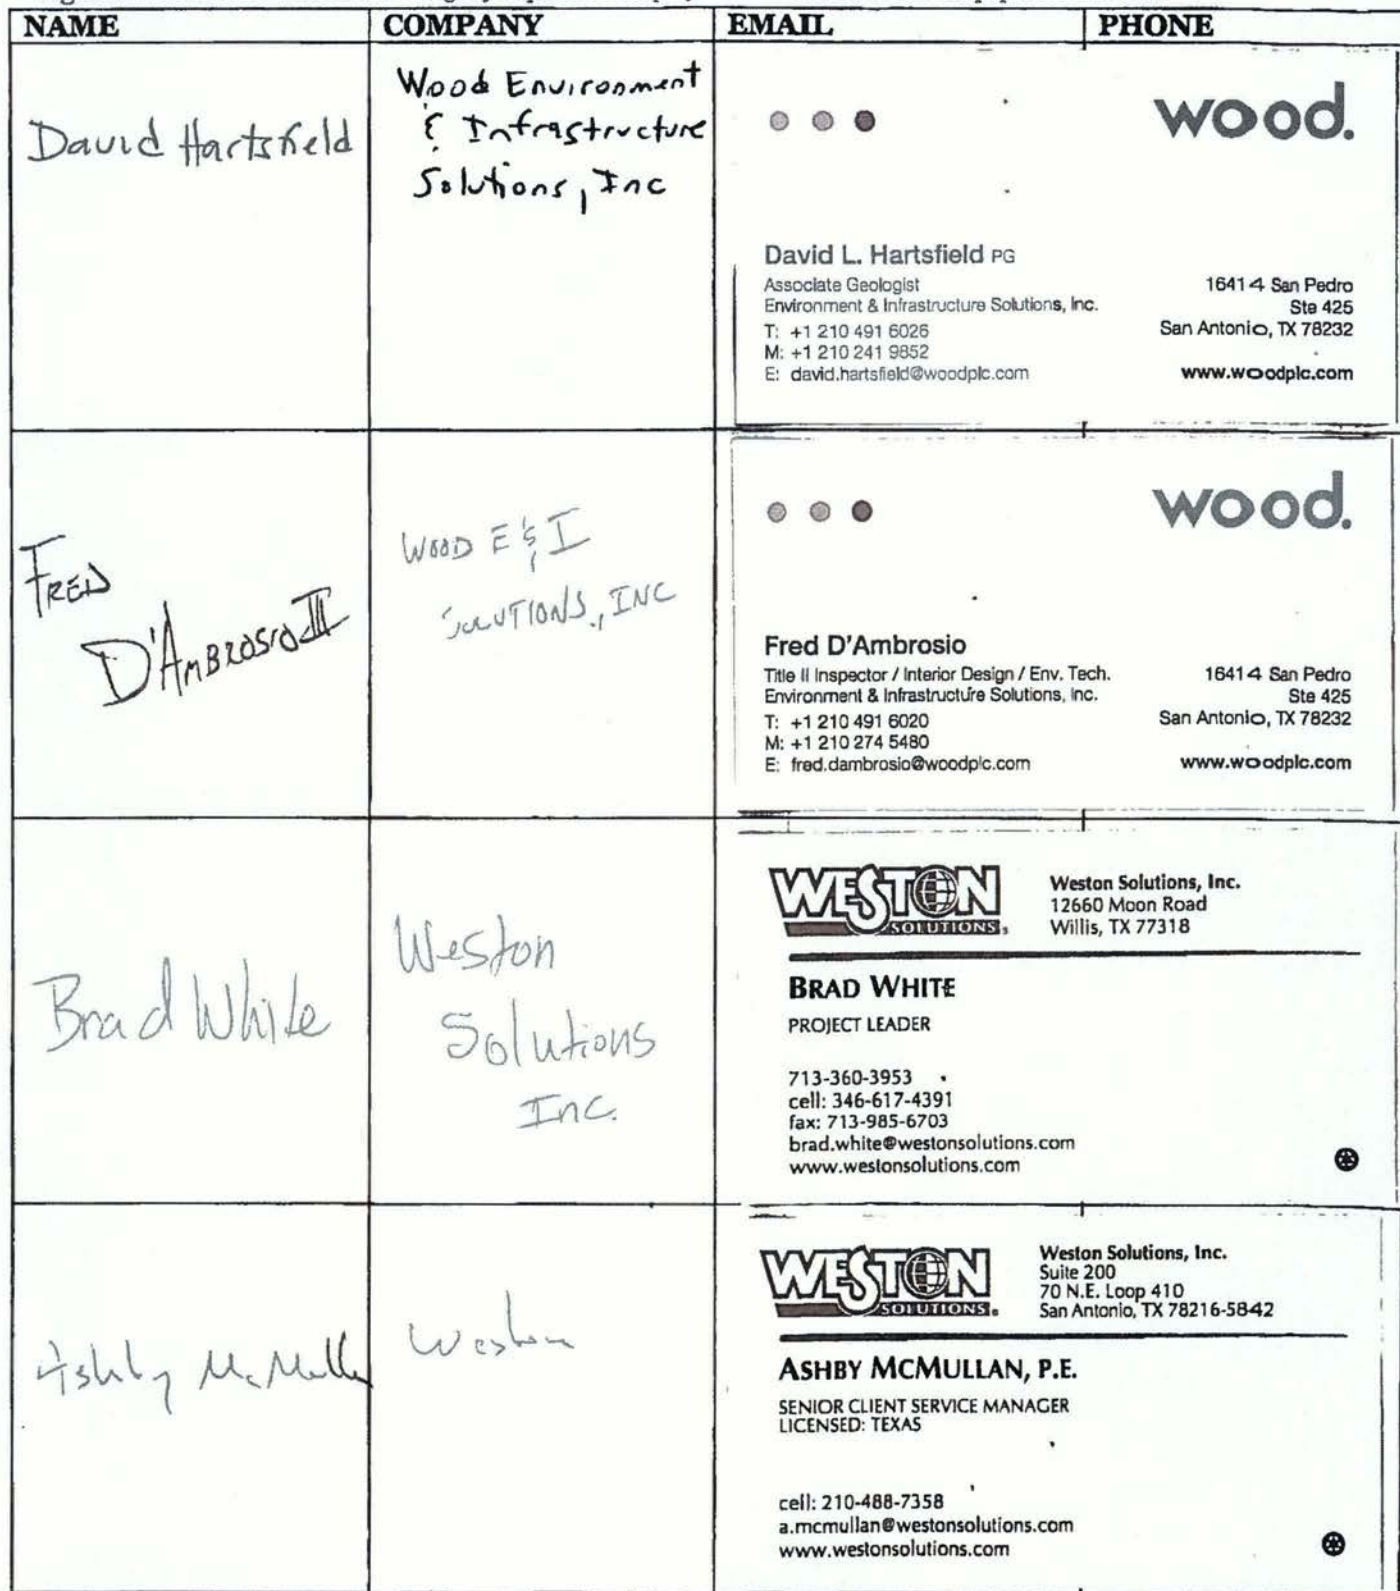 NAME COMPANY EMAIL PHONE
David Hartsfield
Wood Environment
& Infrastructure
Solutions, Inc
wood.
David L. Hartsfield PG
Associate Geologist
Environment & Infrastructure Solutions, Inc.
T: +1 210 491 6026
M: +1 210 241 9852
E: david.hartsfield@woodplc.com
16414 San Pedro
Ste 425
San Antonio, TX 78232
www.woodplc.com
FRED
D'AMBROSIO III
WOOD E & I
SOLUTIONS, INC
wood.
Fred D'Ambrosio
Title II Inspector / Interior Design / Env. Tech.
Environment & Infrastructure Solutions, Inc.
T: +1 210 491 6020
M: +1 210 274 5480
E: fred.dambrosio@woodplc.com
16414 San Pedro
Ste 425
San Antonio, TX 78232
www.woodplc.com
Brad White
Weston
Solutions
Inc.
WESTON
SOLUTIONS
Weston Solutions, Inc.
12660 Moon Road
Willis, TX 77318
BRAD WHITE
PROJECT LEADER
713-360-3953
cell: 346-617-4391
fax: 713-985-6703
brad.white@westonsolutions.com
www.westonsolutions.com
Ashby McMullan
Weston
WESTON
SOLUTIONS
Weston Solutions, Inc.
Suite 200
70 N.E. Loop 410
San Antonio, TX 78216-5842
ASHBY MCMULLAN, P.E.
SENIOR CLIENT SERVICE MANAGER
LICENSED: TEXAS
cell: 210-488-7358
a.mcmullan@westonsolutions.com
www.westonsolutions.com